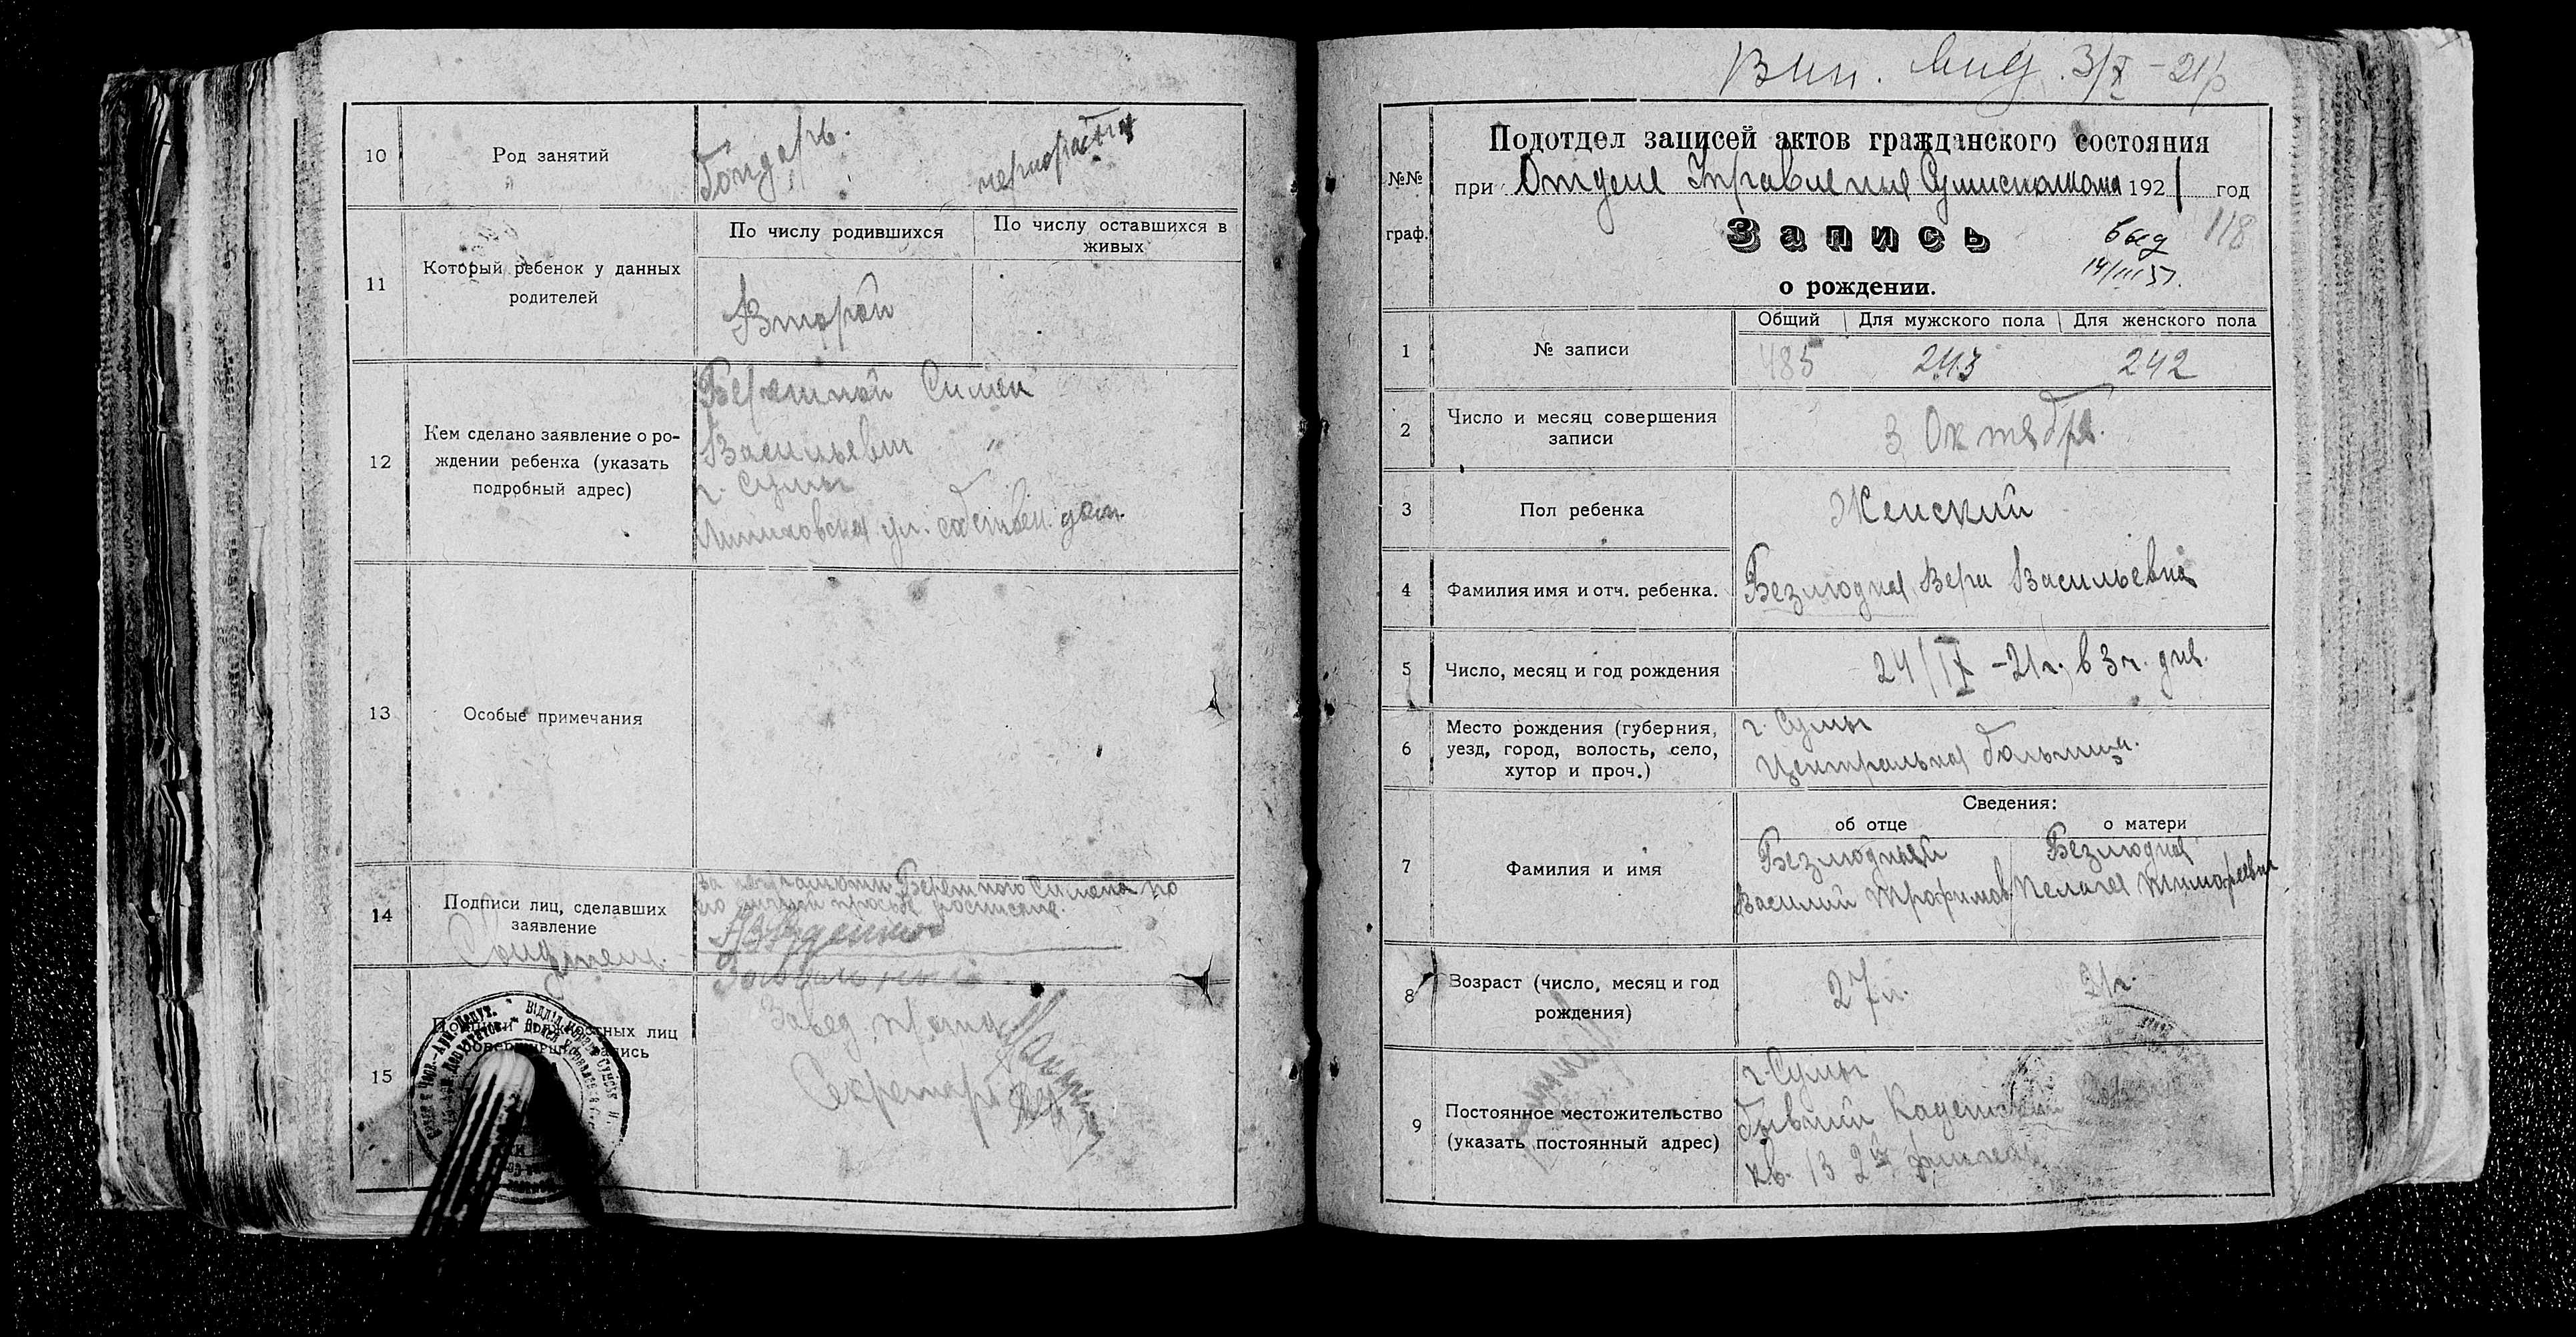 10
Род занятий
Бондарь.
11
Который ребенок у данных
родителей
По числу родившихся
По числу оставшихся в
живых
Второй
12
Кем сделано заявление о ро-
ждении ребенка (указать
подробный адрес)
Бережной Симон
Васильевич
г. Сумы
ул. собствен. дом.
13
Особые примечания
14
Подписи лиц, сделавших
заявление
по
его личной просьбе
15
Подписи должностных лиц
Завед.
Секретарь
Вип. вид. 3/X-21р
№№
граф.
Подотдел записей актов гражданского состояния
при Отделе Управления Сумисполкома 1921 год
Запись
118
14/III 57.
о рождении.
1
№ записи
Общий
Для мужского пола
Для женского пола
485
243
242
2
Число и месяц совершения
записи
3 Октября.
3
Пол ребенка
Женский
4
Фамилия имя и отч. ребенка.
Безлюдная Вера Васильевна
5
Число, месяц и год рождения
24/IX-21г. в 3 ч. дня.
6
Место рождения (губерния,
уезд, город, волость, село,
хутор и проч.)
г. Сумы
Центральная больниц.
7
Фамилия и имя
Сведения:
об отце
о матери
Безлюдный
Василий Трофимов.
Безлюдная
Пелагея Тимофеевна
8
Возраст (число, месяц и год
рождения)
27 л.
21 г.
9
Постоянное местожительство
(указать постоянный адрес)
г. Сумы
бывший Кадетский
кв. 13 2й